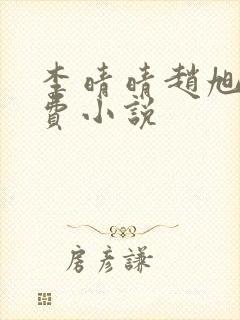 李晴晴趙旭
費小說
房彥謙